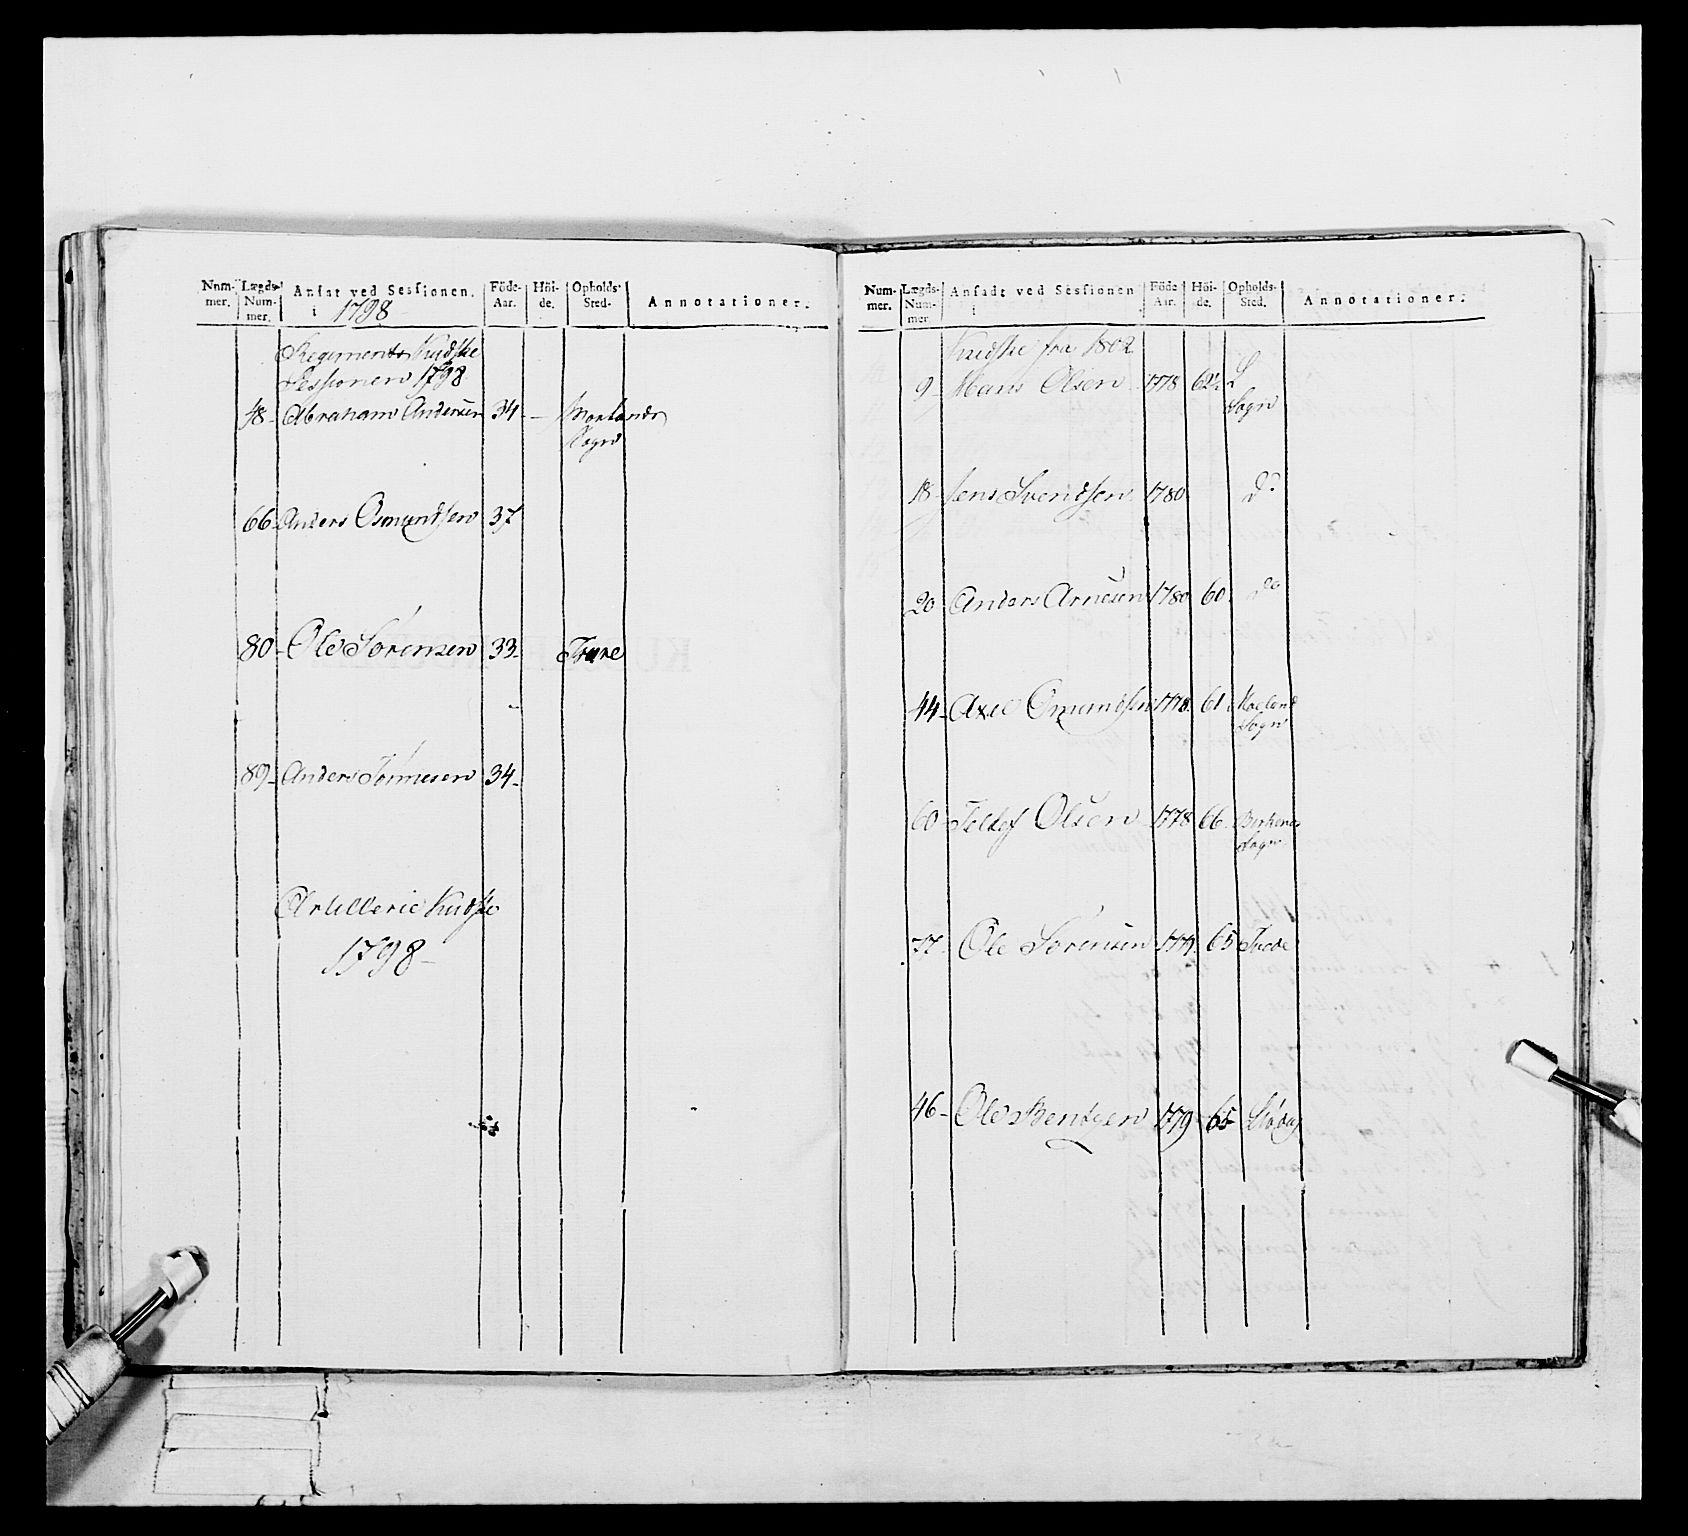 Num-mer. Lægds-Num-mer. Ansat ved Sessionen i 1798 Föde-Aar. Höi-de. Opholds-Sted. Annotationer.
Regiments Kudske
Sessionen 1798
48 - Abraham Andersen 34 -
Sogn
66 - Anders Osmundsen 37
80 - Ole Sörensen 33 -
89 - Anders Tönnesen 34 -
Artillerie Kudske
1798 -
Num-mer. Lægds-Num-mer. Ansadt ved Sessionen i Föde Aar. Höi-de. Opholds-Sted. Annotationer.
Kudske fra 1802
9 - Hans Olsen 1778 62½
Sogn
18 Jens Svendsen 1780 do
20 Anders Arnesen 1780 60 do
44 - Axel Omundsen 1778 61
Sogn
60 Olsen 1778 66 Birkenes
Sogn
Ole Sörensen 1779 65 Tvede
46 - Ole Bentsen 1779 65